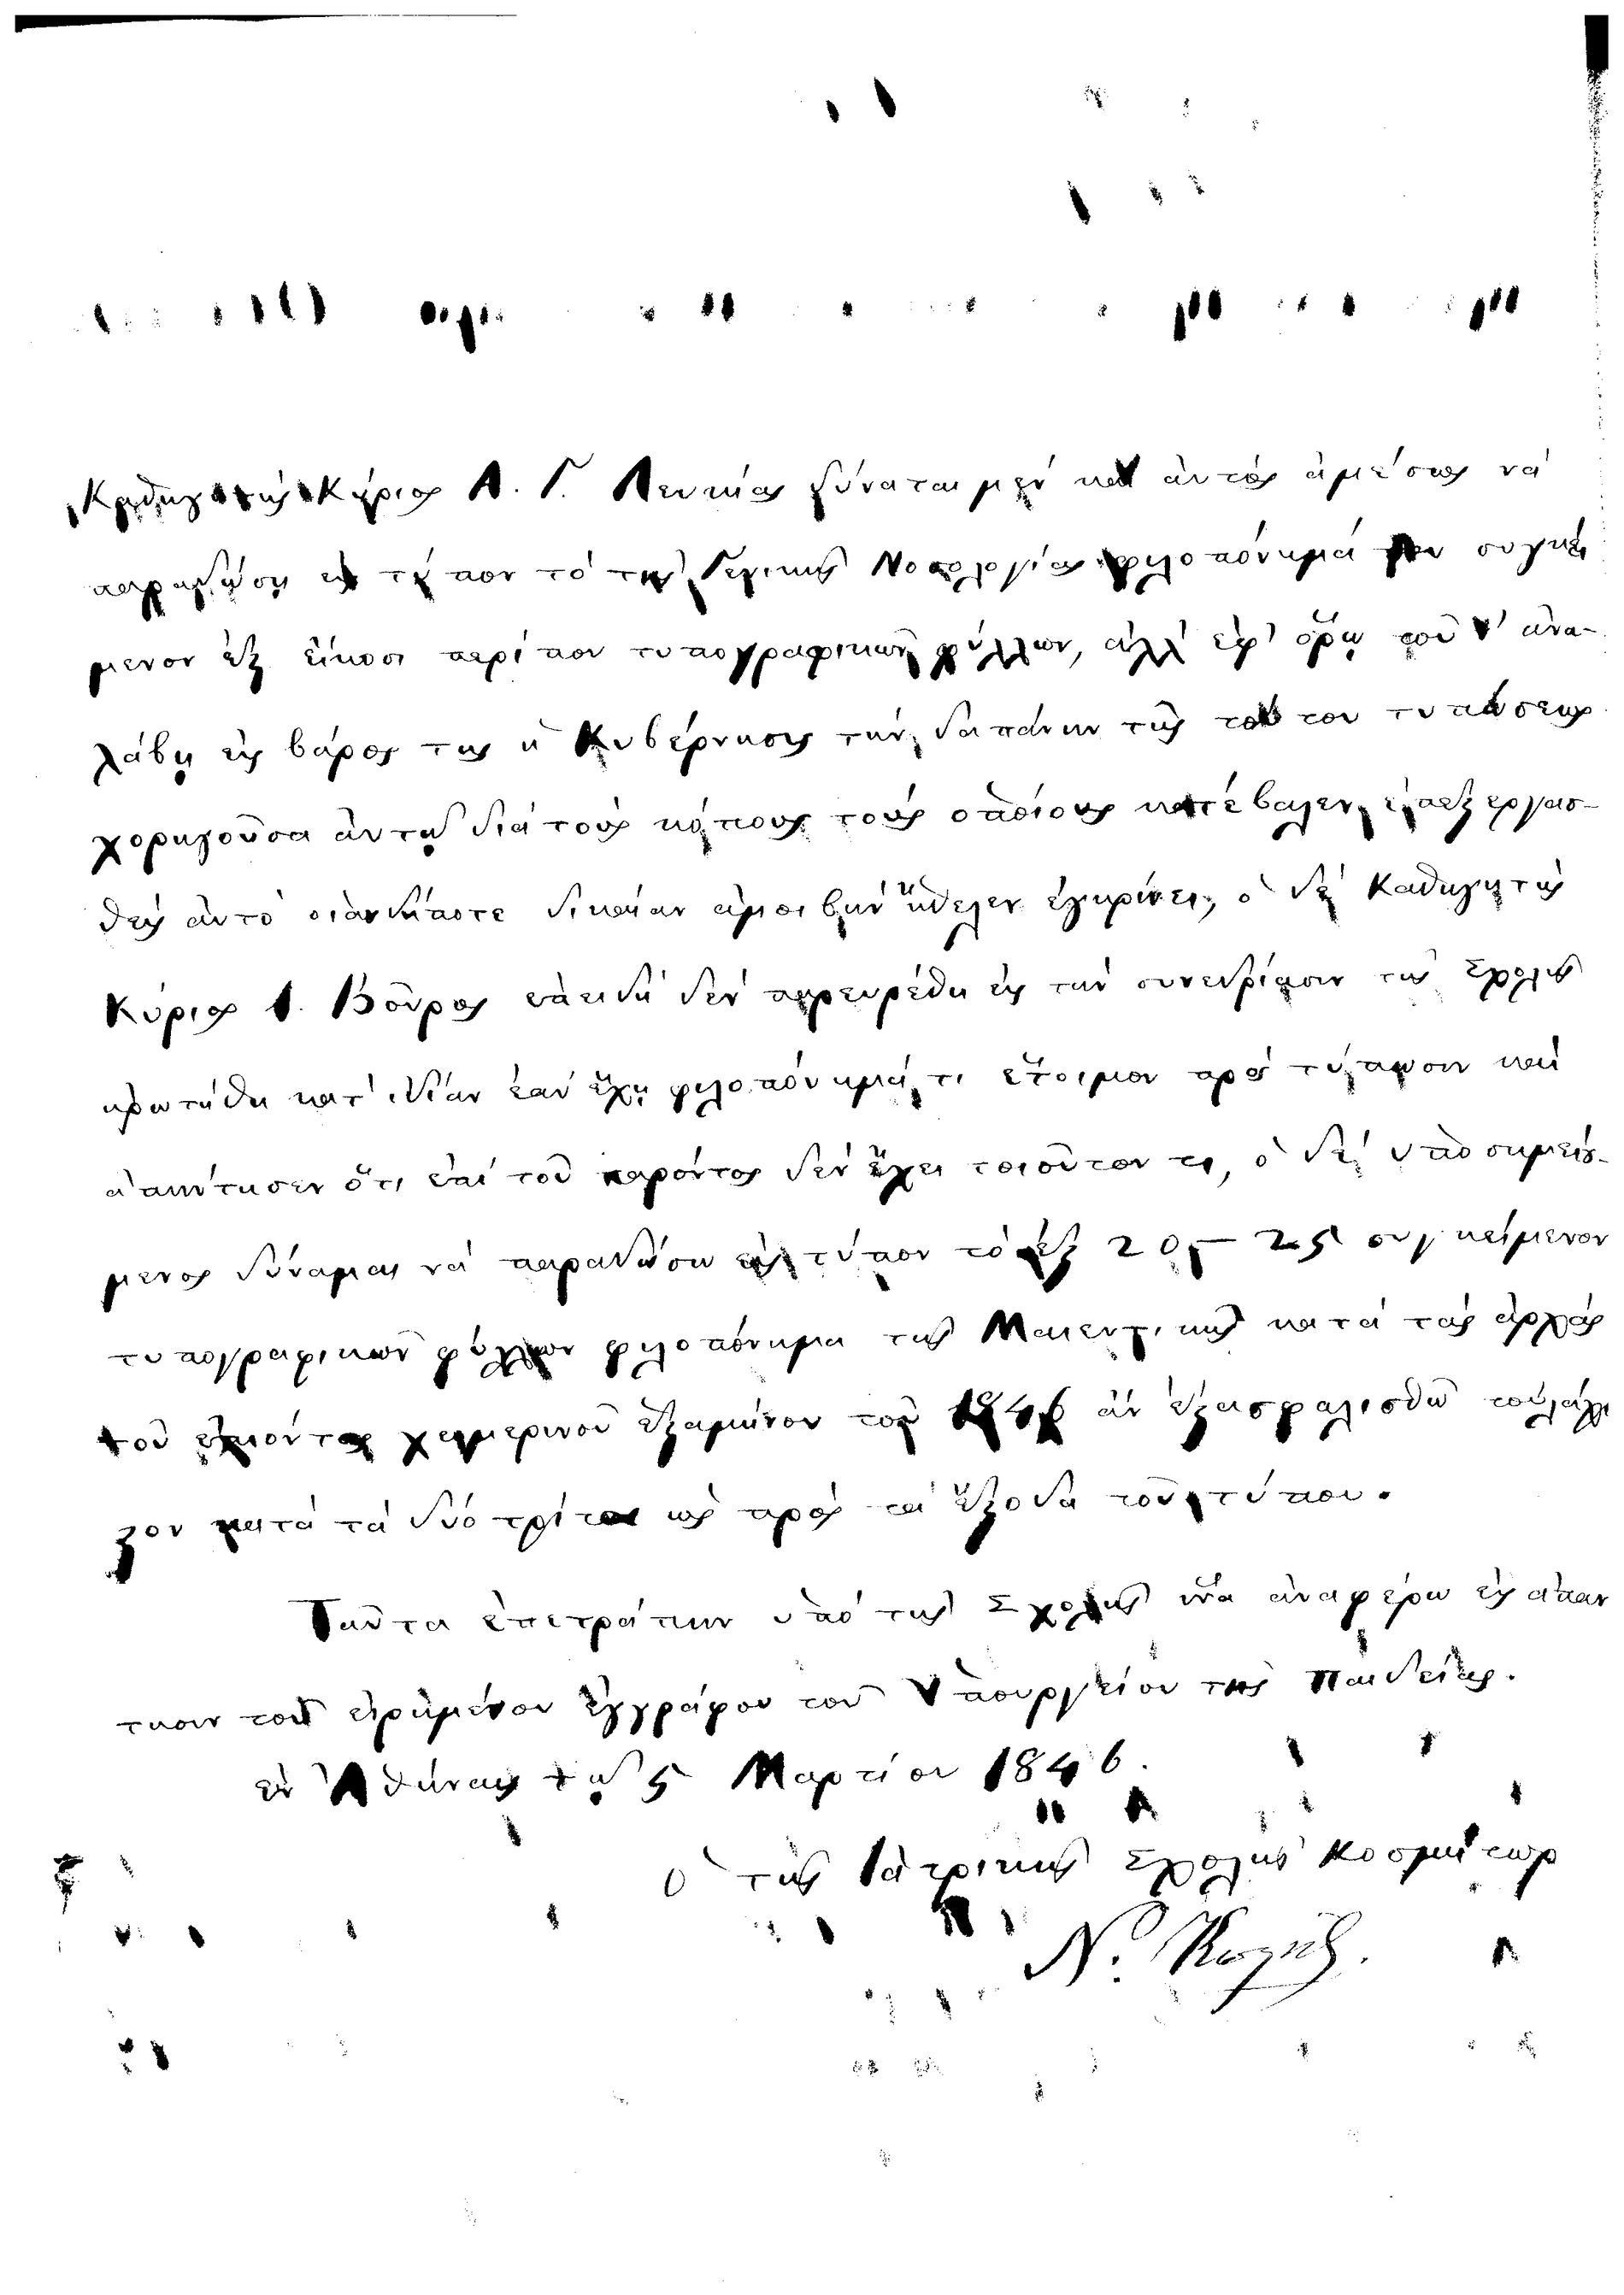 Καθηγητής Κύριος Α. Γ. Λευκίας δύναται μέν καί αὐτός ἀμέσως νά
παραδώσῃ εἰς τύπον τό τῆς Γενικῆς Νοσολογίας φιλοπόνημά του συγκεί
μενον ἐξ εἴκοσι περίπου τυπογραφικῶν φύλλων, ἀλλ' ἐφ' ὅρῳ τοῦ ν' ἀνα-
λάβῃ εἰς βάρος της ἡ Κυβέρνησις τήν δαπάνην τῆς τούτου τυπώσεως
χορηγοῦσα αὐτῷ διά τούς κόπους τούς ὁποίους κατέβαλεν ἐπεξεργασ-
θείς αὐτό οἱανδήποτε δικαίαν ἀμοιβήν ἤθελεν ἐγκρίνει, ὁ δέ Καθηγητής
Κύριος Ι. Βοῦρος ἐπειδή δέν παρευρέθη εἰς τήν συνεδρίασιν τῆς Σχολῆς
ἠρωτήθη κατ' ἰδίαν ἐάν ἔχῃ φιλοπόνημά τι ἕτοιμον πρός τύπωσιν καί
ἀπήντησεν ὅτι ἐπί τοῦ παρόντος δέν ἔχει τοιοῦτον τι, ὁ δέ ὑποσημειό-
μενος δύναμαι νά παραδώσω εἰς τύπον τό ἐξ 20 - 25 συγκείμενον
τυπογραφικῶν φύλλων φιλοπόνημα τῆς Μαιευτικῆς κατά τάς ἀρχάς
τοῦ ἐπιόντος χειμερινοῦ ἑξαμήνου τοῦ 1846 ἄν ἐξασφαλισθῶ τοὐλάχι
στον κατά τά δύο τρίτα ὡς πρός τά ἔξοδα τοῦ τύπου.
Ταῦτα ἐπετράπην ὑπό τῆς Σχολῆς ἵνα ἀναφέρω εἰς ἀπάν
τησιν τοῦ εἰρημένου ἐγγράφου τοῦ Ὑπουργείου τῆς Παιδείας.
ἐν Ἀθήναις τῇ 5 Μαρτίου 1846.
Ὁ τῆς Ἰατρικῆς Σχολῆς Κοσμήτωρ
Ν. Κωστῆς.